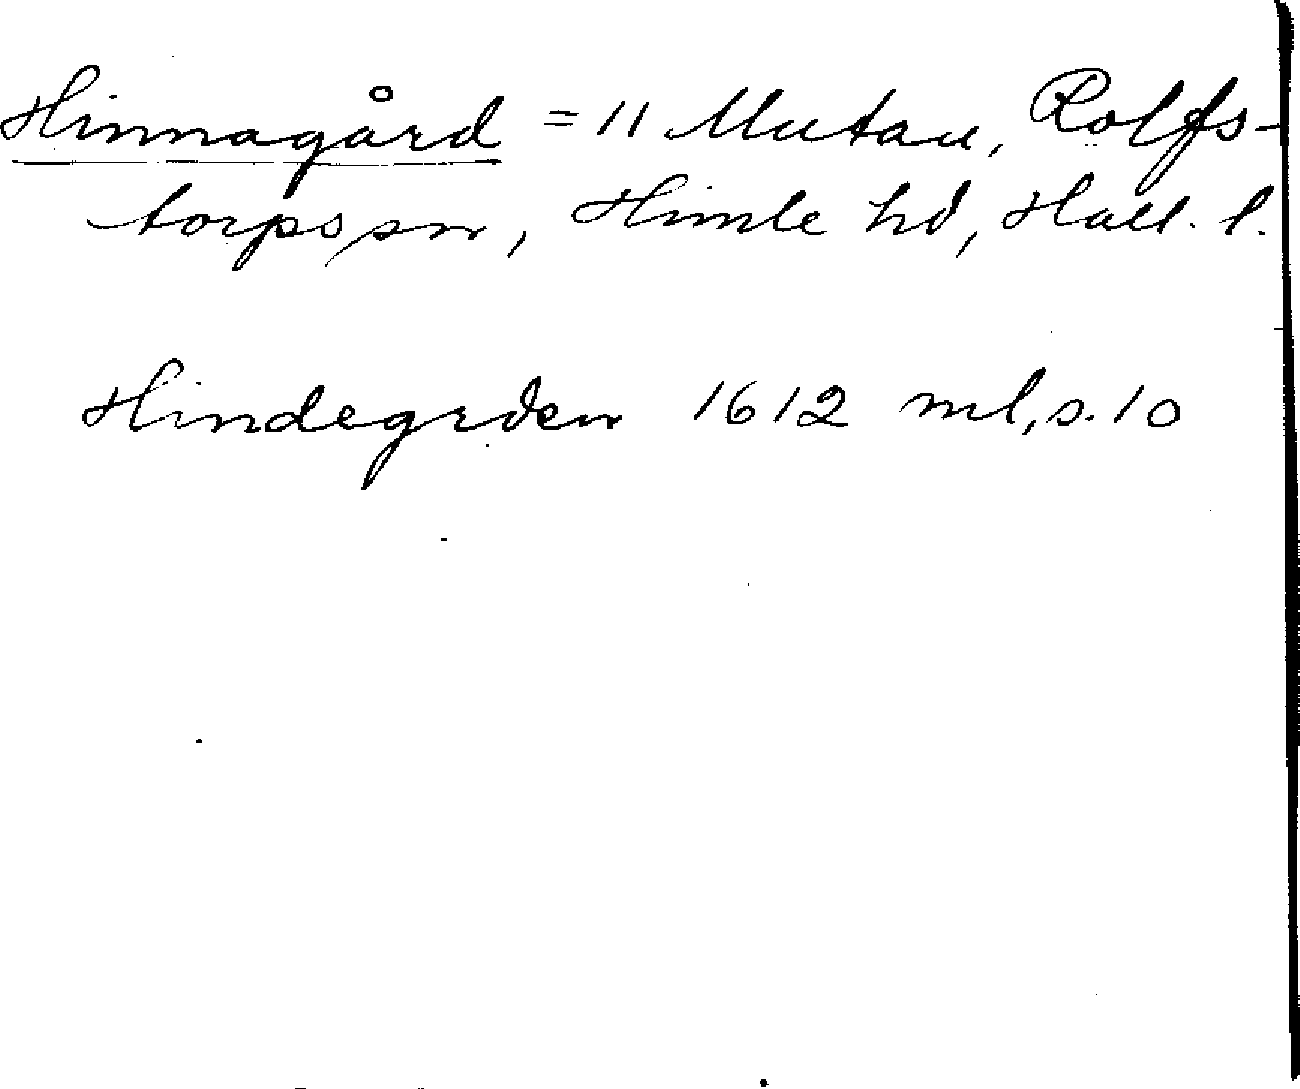 Hinnagård = 11 Mutau, Rolfs-
torps sn, Himle hd, Hall. l.
Hindegrden 1612 ml, s. 10